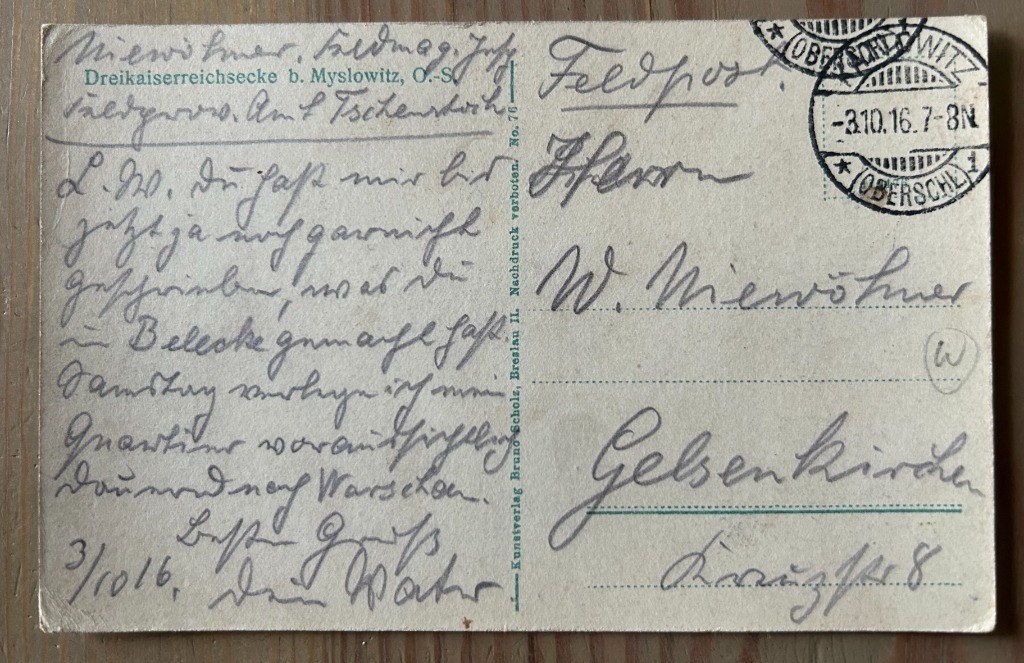 Niewöhner, Feldmag. Insp.
Dreikaiserreichsecke b. Myslowitz, O.-S.
Feldprov. Amt Tschenstoch
L. W. Du hast mir bis
jetzt ja noch garnicht
geschrieben, was Du
in Belecke gemacht hast.
Samstag verlege ich mein
Quartier voraussichtlich
dauernd nach Warschau.
Besten Gruß
3/10 16. Dein Vater
Kunstverlag Bruno Scholz, Breslau II. Nachdruck verboten. No. 76
Feldpost.
Herrn
W. Niewöhner
W
Gelsenkirchen
Kreuzstr 8
-3.10.16.7-8N
(OBERSCHL.)
1